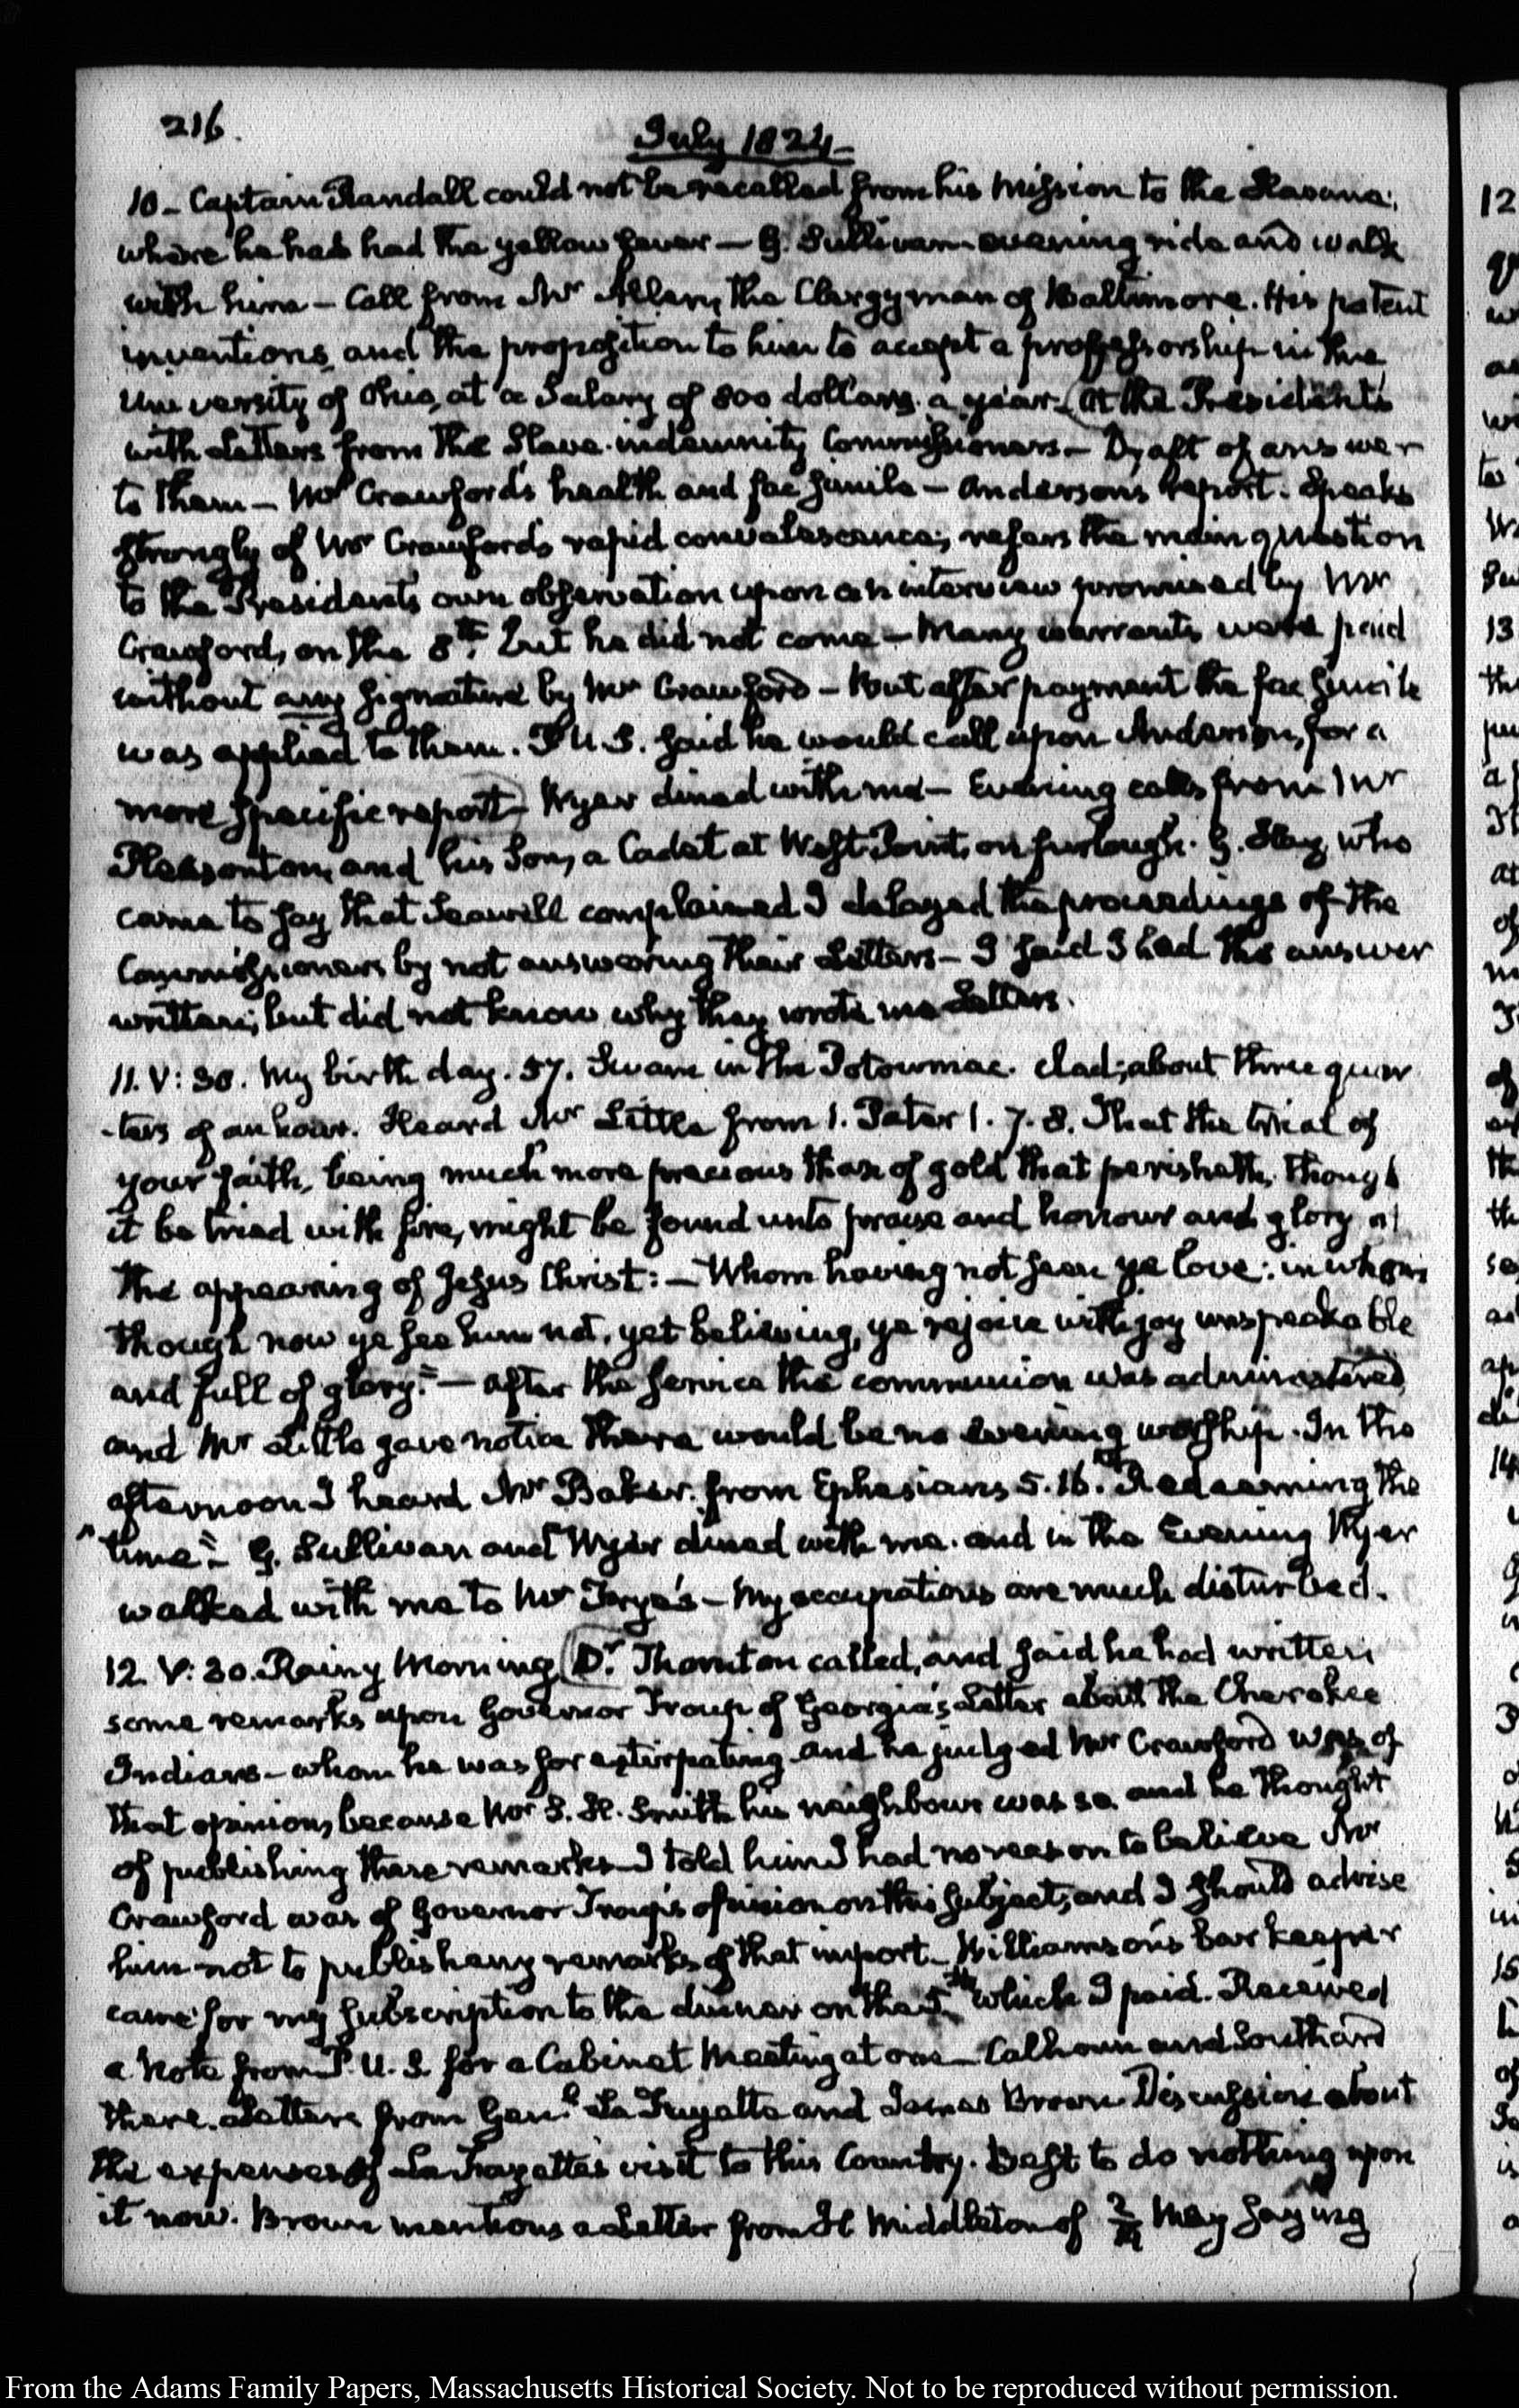 216.
July 1824—
10– Captain Randall could not be recalled from his mission to the Havana;
where he has had the yellow fever — G. Sullivan evening ride and walk
with him – Call from Mr Allen, the Clergyman of Baltimore. His patent
inventions, and the proposition to him to accept a professorship in the
University of Ohio, at a Salary of 800 dollars a year. (At the President's
with Letters from the Slave-indemnity Commissioners – Draft of answer
to them – Mr Crawford's health and fac simile – Anderson's report. Speaks
strongly of Mr Crawford's rapid convalescence; refers the main question
to the President's own observation upon an interview promised by Mr
Crawford, on the 8th. but he did not come – Many warrants were paid
without any signature by Mr Crawford – But after payment the fac simile
was applied to them. P. U. S. said he would call upon Anderson, for a
more specific report) – Wyer dined with me – Evening calls from Mr
Pleasonton, and his Son, a Cadet at West-Point, on furlough. G. Hay, who
came to say that Seawell complained I delayed the proceedings of the
Commissioners by not answering their Letters – I said I had the answer
written; but did not know why they wrote me Letters.
11. V: 30. My birth day. 57. Swam in the Potowmac. clad; about three quar
-ters of an hour. Heard Mr Little from 1. Peter 1. 7. 8. That the trial of
your faith, being much more precious than of gold that perisheth, though
it be tried with fire, might be found unto praise and honour and glory at
the appearing of Jesus Christ: – Whom having not seen ye love: in whom
though now ye see him not, yet believing, ye rejoice with joy unspeakable
and full of glory." — After the service the communion was administered
and Mr Little gave notice there would be no evening worship. In the
afternoon I heard Mr Baker. from Ephesians 5. 16. "Redeeming the
"time" – G. Sullivan and Wyer dined with me. and in the Evening Wyer
walked with me to Mr Frye's – My occupations are much disturbed.
12. V: 30. Rainy Morning (Dr Thornton called, and said he had written
some remarks upon Governor Troup of Georgia's Letter about the Cherokee
Indians – whom he was for extirpating and he judged Mr Crawford was of
that opinion, because Mr S. H. Smith his neighbour was so and he thought
of publishing these remarks – I told him I had no reason to believe Mr
Crawford was of Governor Troup's opinion on this subject, and I should advise
him not to publish any remarks of that import – Williamson's bar keeper
came for my subscription to the dinner on the 5th which I paid. Received
a Note from P. U. S. for a Cabinet Meeting at one – Calhoun and Southard
there. Letters from Genl. La Fayette and James Brown. Discussion about
the expenses of La Fayette's visit to this Country. Best to do nothing upon
it now. Brown mentions a Letter from H Middleton of May saying
From the Adams Family Papers, Massachusetts Historical Society. Not to be reproduced without permission.